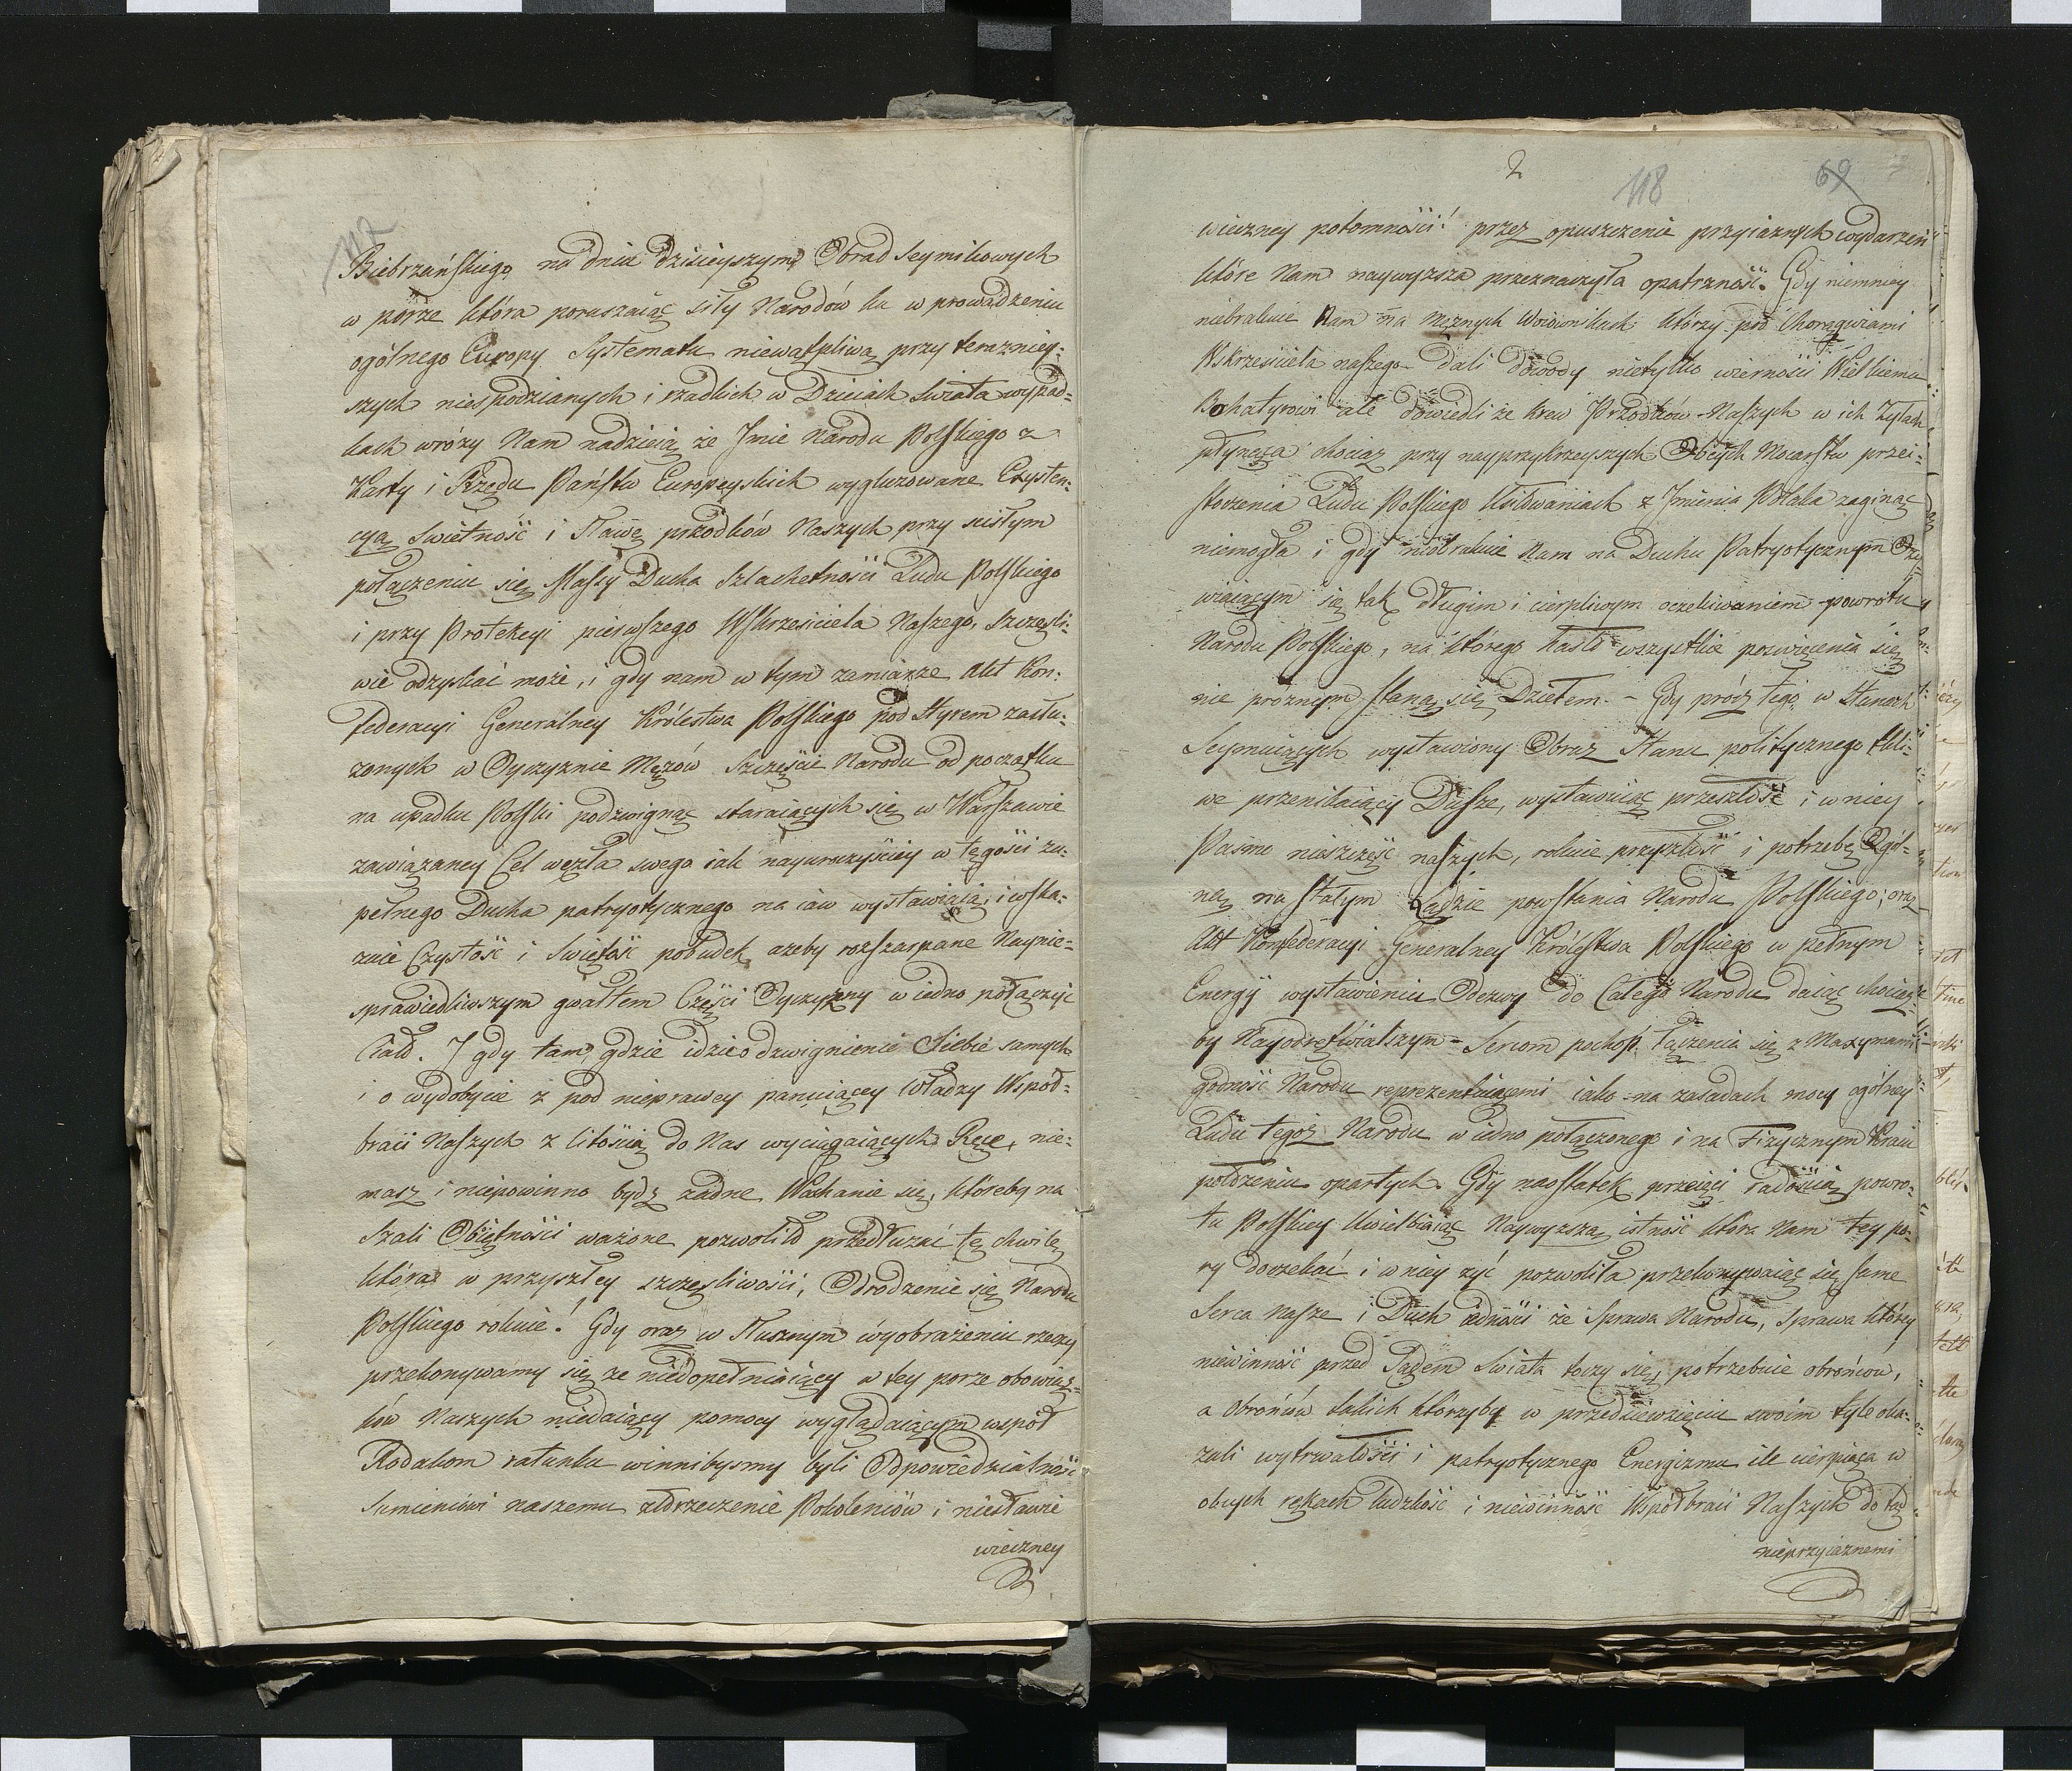 112
Biebrzańskiego na dniu dzisieyszym Obrad Seymikowych
w porze która poruszaiąc siły Narodów ku wprowadzeniu
ogólnego Europy Systematu niewątpliwą przy terazniey-
szych niespodzianych i rzadkich w Dzieiach Swiata wypad-
kach wróży Nam nadzieią że Jmie Narodu Polskiego z
Karty i Rzędu Państw Europeyskich wygluzowane Exysten-
cyą Swietność i Sławę przodków Naszych przy scisłym
połączeniu się Massy Ducha Szlachetności Ludu Polskiego
i przy Protekcyi pierwszego Wskrzesiciela Naszego, szczęsli-
wie odzyskać może, i gdy nam w tym zamiarze Akt Kon-
federacyi Generalney Królestwa Polskiego pod Styrem zasłu-
zonych w Oyczyznie Mężów Szczęście Narodu od początku
na upadku Polski podzwignąć staraiących się w Warszawie
zawiązaney Cel węzła swego iak nayuroczyściey w tęgości zu-
pełnego Ducha patryotycznego na iaw wystawiaią, i wska-
zuie Czystość i Swiętość pobudek azeby rozszarpane Naynie-
sprawiedliwszym gwałtem Części Oyczyzny w iedno połączyć
Ciało. I gdy tam, gdzie idzie o dzwignienie Siebie samych
i o wydobycie z pod nieprawey panuiącey Władzy Wspoł-
braci Naszych z litością do Nas wyciągaiących Ręce, nie-
masz i niepowinno bydz żadne Wachanie się, któreby na
Szali Obiętności ważone pozwoliło przedłuzać tę chwilę
która w przyszłey szczęsliwości, Odrodzenie się Narodu
Polskiego rokuie! Gdy oraz w słusznym wyobrażeniu rzeczy
przekonywamy się ze niedopełniaiący w tey porze obowiąz-
ków Naszych niedaiący pomocy wyglądaiącym wspoł
Rodakom ratunku winnibysmy byli Odpowiedzialność
Sumieniowi naszemu złorzeczenie Pokoleniów i niesławie
wieczney
2
118
69
wieczney potomności! przez opuszczenie przyiaznych wydarzeń
które Nam naywyzsza przeznaczyła opatrzność. Gdy niemniey
niebrakuie Nam na męznych Woiownikach którzy pod Chorągwiami
Wskrzesiciela naszego dali dowody nietylko wierności Wielkiemu
Bohatyrowi ale dowiedli że krew Przodków Naszych w ich Żyłach
płynąca chociaż przy nayprzykrzeyszych Obcych Mocarstw przei-
stoczenia Ludu Polskiego Usiłowaniach z Jmienia Polaka zaginąć
niemogła i gdy niebrakuie Nam na Duchu Patryotycznym
się tak długim i cierpliwym oczekiwaniem powrotu
Narodu Polskiego, na którego hasło wszystkie poswięcenia się
nie próżnym staną się Dziełem. – Gdy prócz tego w Stanach
Seymuiących wystawiony Obraz Stanu politycznego tkli-
we przenikaiący Dusze, wystawuiąc przeszłość i w niey
Pasmo nieszczęść naszych, rokuie przyszłość i potrzebę Ogól-
ną na stałym Lądzie powstania Narodu Polskiego; oraz
Akt Konfederacyi Generalney Królestwa Polskiego w pełnym
Energii wystawieniu Odezwy do Całego Narodu daiąc chociaż
by Nayodrętwialszym Sercom pochop łączenia się z Maxymami
godność Narodu reprezentuiącemi iako na zasadach mocy ogólney
Ludu tegoż Narodu w iedno połączonego i na Fizycznym Kraiu
położeniu opartych. Gdy naostatek przeięci radością powro-
tu Polskiey Uwielbiaiąc Naywyzszą istność która Nam tey po-
ry doczekać i w niey żyć pozwoliła przekonywaiąc się same
Serca Nasze i Duch iedności że Sprawa Narodu, Sprawa którey
niewinność przed Sądem Swiata toczy się, potrzebuie obrońców,
a Obrońców takich którzyby w przedsięwzięciu swoim tyle oka-
zali wytrwałości i patryotycznego Energizmu ile cierpiąca w
obcych rękach ludzkość i niewinność Wspołbraci Naszych do tąd
nieprzyiaznemi